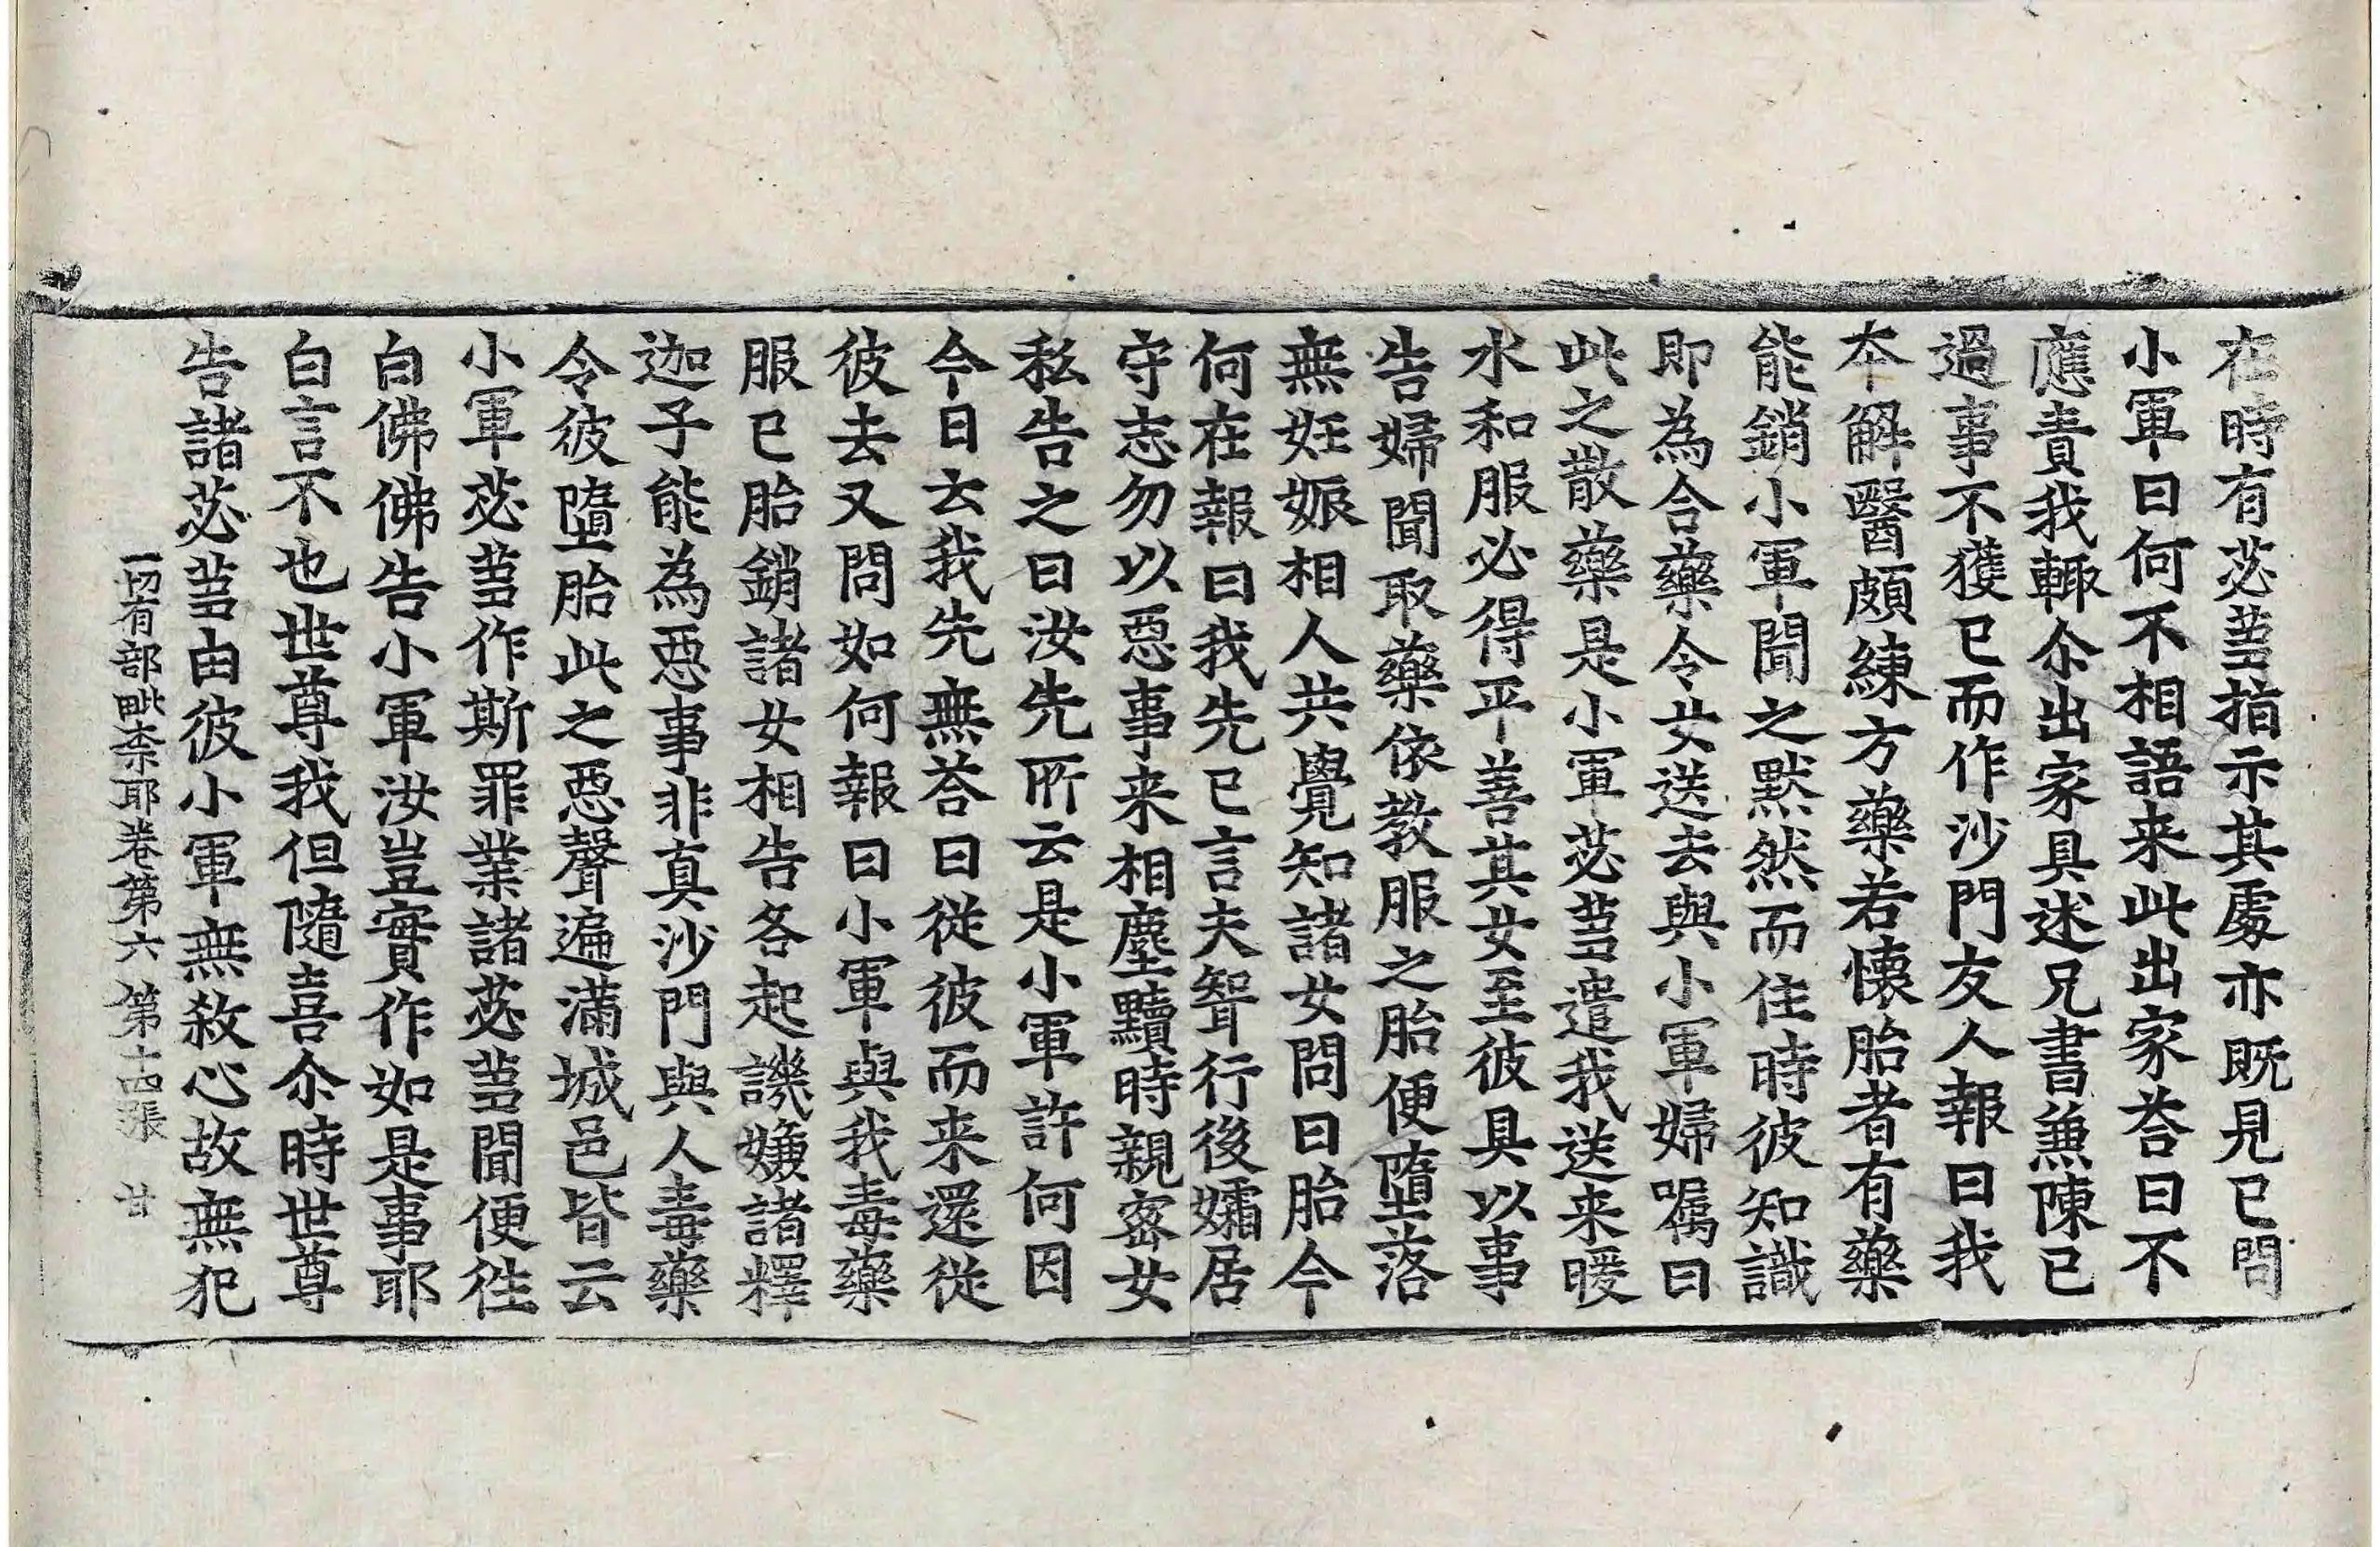 在時有苾蒭指示其處亦既見已問
小軍曰何不相語来此出家荅曰不
應責我輙尒出家具述兄書兼陳已
過事不獲已而作沙門友人報曰我
夲解醫頗練方藥若懷胎者有藥
能銷小軍聞之默然而住時彼知識
即為合藥令女送去與小軍婦囑曰
此之散藥是小軍苾蒭遣我送来暖
水和服必得平善其女至彼具以事
告婦聞取藥依教服之胎便墮落
無妊娠相人共覺知諸女問曰胎今
何在報曰我先已言夫壻行後孀居
守志勿以惡事来相塵黷時親密女
私告之曰汝先所云是小軍許何因
今日云我先無荅曰從彼而来還從
彼去又問如何報曰小軍與我毒藥
服已胎銷諸女相告各起譏嫌諸釋
迦子能為惡事非真沙門與人毒藥
令彼墮胎此之惡聲遍滿城邑皆云
小軍苾蒭作斯罪業諸苾蒭聞便徃
白佛佛告小軍汝豈實作如是事耶
白言不也世尊我但隨喜尒時世尊
告諸苾蒭由彼小軍無敎心故無犯
一切有部毗柰耶卷第六 第十四張 甘